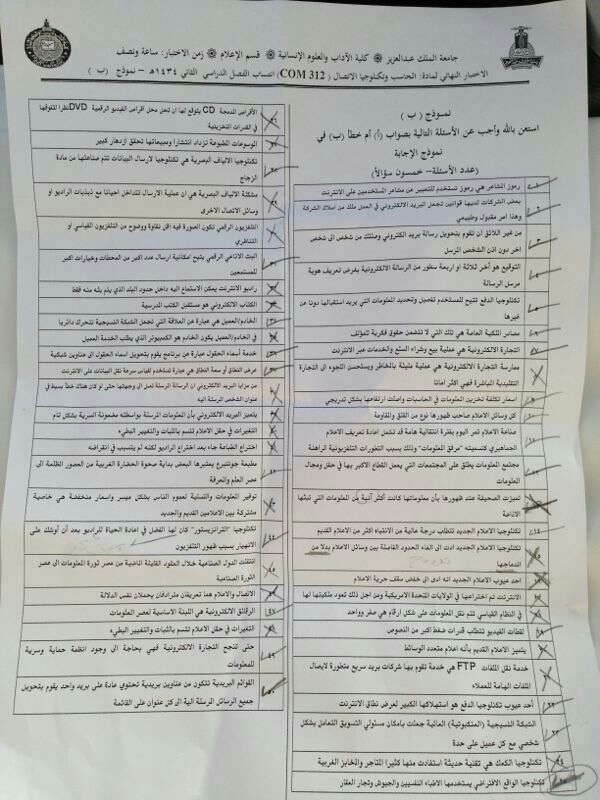 جامعة الملك عبدالعزيز كلية الآداب والعلوم الإنسانية قسم الإعلام زمن الاختبار: ساعة ونصف
الاختبار النهائي لمادة: الحاسب وتكنولوجيا الاتصال (COM 312) انتساب الفصل الدراسي الثاني ١٤٣٤هـ – نموذج (ب)
نموذج (ب)
استعن بالله وأجب عن الأسئلة التالية بصواب (أ) أم خطأ (ب) في
نموذج الإجابة
(عدد الأسئلة- خمسون سؤالاً)
رموز المشاعر هي رموز تستخدم للتعبير عن مشاعر المستخدمين على الانترنت
بعض الشركات لديها قوانين تجعل البريد الالكتروني في العمل ملك من املاك الشركة
وهذا امر مقبول وطبيعي
من غير اللائق ان تقوم بتحويل رسالة بريد الكتروني وصلتك من شخص الى شخص
اخر دون اذن الشخص المرسل
التوقيع هو أخر ثلاثة او اربعة سطور من الرسالة الالكترونية بغرض تعريف هوية
مرسل الرسالة
تكنولوجيا الدفع تتيح للمستخدم تخصيص وتحديد المعلومات التي يريد استقبالها دونا عن
غيرها
مصادر الملكية العامة هي تلك التي لا تتضمن حقوق فكرية للمؤلف
التجارة الالكترونية هي عملية بيع وشراء السلع والخدمات عبر الانترنت
ممارسة التجارة الالكترونية هي عملية مليئة بالمخاطر ويستحسن اللجوء الى التجارة
التقليدية المباشرة فهي أكثر امانا
اسعار تكلفة تخزين المعلومات في الحاسبات واصلت ارتفاعها بشكل تدريجي
كل وسائل الاعلام صاحب ظهورها نوع من القلق والمقاومة
صناعة الاعلام تمر اليوم بفترة انتقالية هامة قد تشمل اعادة تعريف الاعلام
الجماهيري كتسميته "مرفق المعلومات" وذلك بسبب التطورات التلفزيونية الراهنة
مجتمع المعلومات يطلق على المجتمعات التي يعمل القطاع الاكبر بها في حقل ومجال
المعلومات
تميزت الصحيفة عند ظهورها بأن معلوماتها كانت أكثر آنية من المعلومات التي تبثها
الاذاعة
تكنولوجيا الاعلام الجديد تتطلب درجة عالية من الانتباه اكثر من الاعلام القديم
تكنولوجيا الاعلام الجديد ادت الى الغاء الحدود الفاصلة بين وسائل الاعلام بدلا من
اندماجها
احد عيوب الاعلام الجديد انه ادى الى خفض سقف حرية الاعلام
الانترنت تم اختراعها في الولايات المتحدة الامريكية ومن اجل ذلك تعود ملكيتها لها
في النظام القياسي تتم نقل المعلومات على شكل ارقام هي صفر وواحد
لقطات الفيديو تتطلب قدرات ضغط اكبر من النصوص
يتميز الاعلام القديم بأنه اعلام متعدد الوسائط
خدمة نقل الملفات FTP هي خدمة تقوم بها شركات بريد سريع متطورة لايصال
الملفات الهامة للعملاء
أحد عيوب تكنولوجيا الدفع هو استهلاكها الكبير لعرض نطاق الانترنت
الشبكة النسيجية (العنكبوتية) العالمية جعلت بامكان مسئولي التسويق التعامل بشكل
شخصي مع كل عميل على حدة
تكنولوجيا الكعك هي تقنية حديثة استفادت منها كثيرا المتاجر والمخابز الغربية
تكنولوجيا الواقع الافتراضي يستخدمها الاطباء النفسيين والجيوش وتجار العقار
الأقراص المدمجة CD يتوقع لها ان تحل محل اقراص الفيديو الرقمية DVD نظرا لتفوقها
في القدرات التخزينية
الموسوعات المطبوعة تزداد انتشارا ومبيعاتها تحقق ازدهار كبير
تكنولوجيا الالياف البصرية هي تكنولوجيا لارسال البيانات تتم صناعتها من مادة
الزجاج
مشكلة الالياف البصرية هي ان عملية الارسال تتداخل احيانا مع ذبذبات الراديو او
وسائل الاتصال الاخرى
التلفزيون الرقمي تكون الصورة فيه اقل نقاوة ووضوح من التلفزيون القياسي أو
التناظري
البث الاذاعي الرقمي يتيح امكانية ارسال عدد اكبر من المحطات وخيارات أكبر
للمستمعين
راديو الانترنت يمكن الاستماع اليه داخل حدود البلد الذي يتم بثه منه فقط
الكتاب الالكتروني هو مستقبل الكتب المدرسية
الخادم/العميل هي عبارة عن العلاقة التي تجعل الشبكة النسيجية تتحرك دائريا
في الخادم/العميل يكون الخادم هو الكمبيوتر الذي يطلب الخدمة العميل
خدمة أسماء الحقول عبارة عن برنامج يقوم بتحويل أسماء الحقول الى عناوين شبكية
عرض النطاق او سعة النطاق هي عبارة تستخدم لقياس سرعة نقل البيانات على الانترنت
من مزايا البريد الالكتروني ان الرسالة المرسلة تصل الى وجهتها حتى لو كان هناك خطأ بسيط في
عنوان الشخص المرسلة اليه
يتميز البريد الالكتروني بأن المعلومات المرسلة بواسطته مضمونة السرية بشكل تام
التغيرات في حقل الاعلام تتسم بالثبات والتغيير البطيء
اختراع الطباعة جاء بعد اختراع الراديو لكنه لم يتسبب في انقراضه
مطبعة جوتنبرغ يعتبرها البعض بداية صحوة الحضارة الغربية من العصور المظلمة الى
عصر العلم والمعرفة
توفير المعلومات والتسلية لعموم الناس بشكل ميسر واسعار منخفضة هي خاصية
مشتركة بين الاعلامين القديم والجديد
تكنولوجيا "الترانزيستور" كان لها الفضل في اعادة الحياة للراديو بعد أن أوشك على
الانهيار بسبب ظهور التلفزيون
انتقلت الدول الصناعية خلال العقود القليلة الماضية من عصر ثورة المعلومات الى عصر
الثورة الصناعية
الاتصال والاعلام هما تعريفان مترادفان يحملان نفس الدلالة
الرقائق الالكترونية هي اللبنة الاساسية لعصر المعلومات
التغيرات في حقل الاعلام تتسم بالثبات والتغيير البطيء
حتى تنجح التجارة الالكترونية فهي بحاجة الى وجود انظمة حماية وسرية
للمعلومات
القوائم البريدية تتكون من عناوين بريدية تحتوي عادة على بريد واحد يقوم بتحويل
جميع الرسائل المرسلة الية الى كل عنوان على القائمة